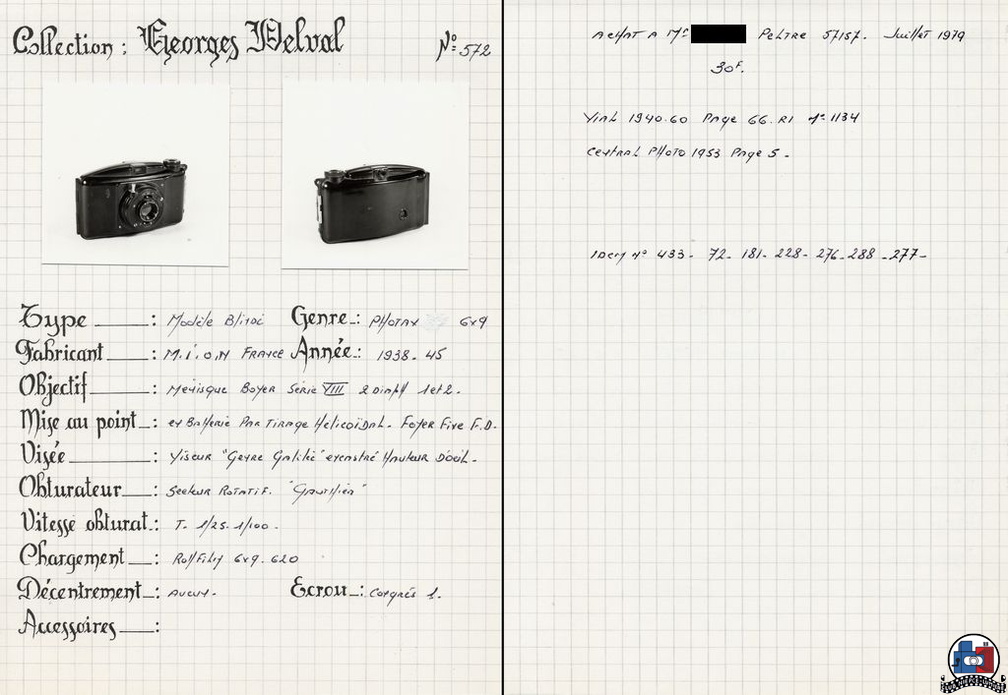 Collection : Georges Delval Nº 572
Type : Modèle Blindé Genre : PHOTAX 6x9
Fabricant : M.I.O.M FRANCE Année : 1938-45
Objectif : Menisque Boyer Serie VIII 2 Diaph 1et2.
Mise au point : en Batterie Par Tirage Helicoïdal. Foyer Fixe F.D.
Visée : Viseur "Genre Galilée" excentré Hauteur D'oeil.
Obturateur : Secteur Rotatif. "Gauthier"
Vitesse obturat. : T. 1/25. 1/100.
Chargement : RollFilm 6x9. 620
Décentrement : Aucun. Ecrou : Congrés 1.
Accessoires :
ACHAT A Mr PELTRE 57157. Juillet 1979
30F.
Vial 1940.60 Page 66. RI Nº 1134
Central PHOTO 1953 Page 5.
IDEM Nº 433 - 72 - 181 - 228 - 276 - 288 - 277 -